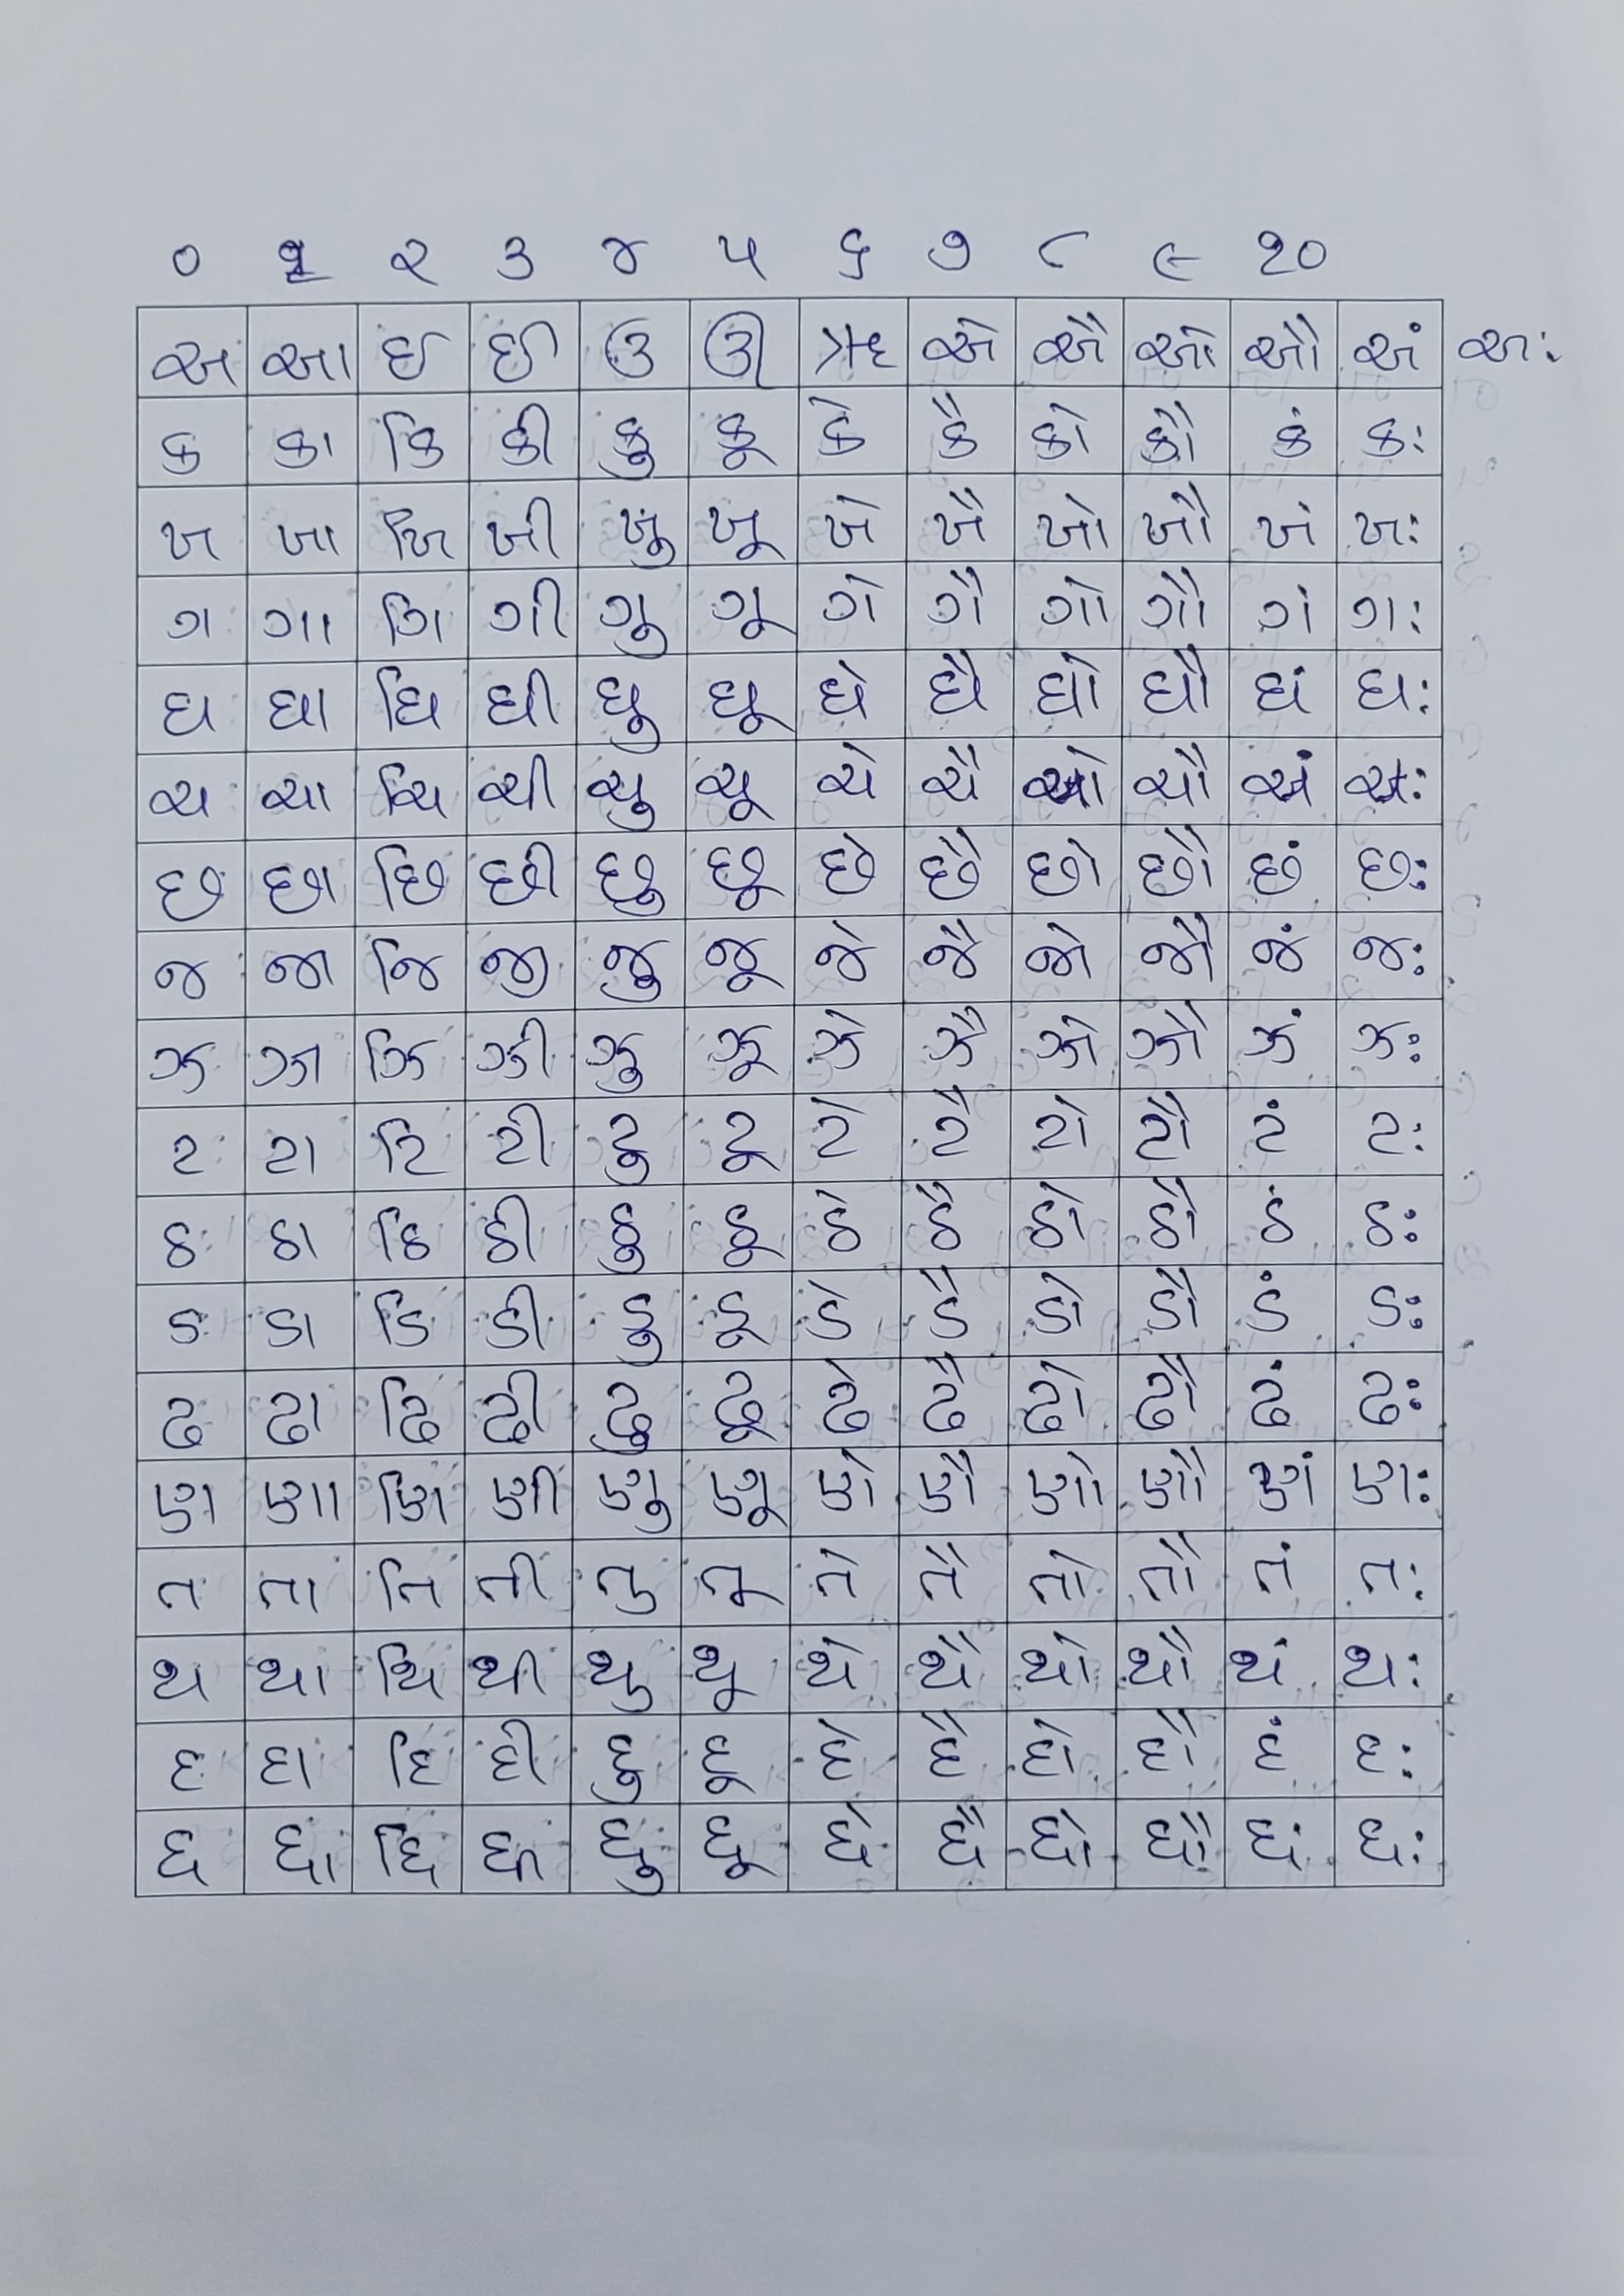 ૦ ૧ ૨ ૩ ૪ ૫ ૬ ૭ ૮ ૯ ૧૦
અ આ ઇ ઈ ઉ ઊ ઋ એ ઐ ઓ ઔ અં અઃ
ક કા કિ કી કુ કૂ કે કૈ કો કૌ કં કઃ
ખ ખા ખિ ખી ખુ ખૂ ખે ખૈ ખો ખૌ ખં ખઃ
ગ ગા ગિ ગી ગુ ગૂ ગે ગૈ ગો ગૌ ગં ગઃ
ઘ ઘા ઘિ ઘી ઘુ ઘૂ ઘે ઘૈ ઘો ઘૌ ઘં ઘઃ
ચ ચા ચિ ચી ચુ ચૂ ચે ચૈ ચો ચૌ ચં ચઃ
છ છા છિ છી છુ છૂ છે છૈ છો છૌ છં છઃ
જ જા જિ જી જુ જૂ જે જૈ જો જૌ જં જઃ
ઝ ઝા ઝિ ઝી ઝુ ઝૂ ઝે ઝૈ ઝો ઝૌ ઝં ઝઃ
ટ ટા ટિ ટી ટુ ટૂ ટે ટૈ ટો ટૌ ટં ટઃ
ઠ ઠા ઠિ ઠી ઠુ ઠૂ ઠે ઠૈ ઠો ઠૌ ઠં ઠઃ
ડ ડા ડિ ડી ડુ ડૂ ડે ડૈ ડો ડૌ ડં ડઃ
ઢ ઢા ઢિ ઢી ઢુ ઢૂ ઢે ઢૈ ઢો ઢૌ ઢં ઢઃ
ણ ણા ણિ ણી ણુ ણૂ ણે ણૈ ણો ણૌ ણં ણઃ
ત તા તિ તી તુ તૂ તે તૈ તો તૌ તં તઃ
થ થા થિ થી થુ થૂ થે થૈ થો થૌ થં થઃ
દ દા દિ દી દુ દૂ દે દૈ દો દૌ દં દઃ
ધ ધા ધિ ધુ ધૂ ધે ધૈ ધો ધૌ ધં ધઃ